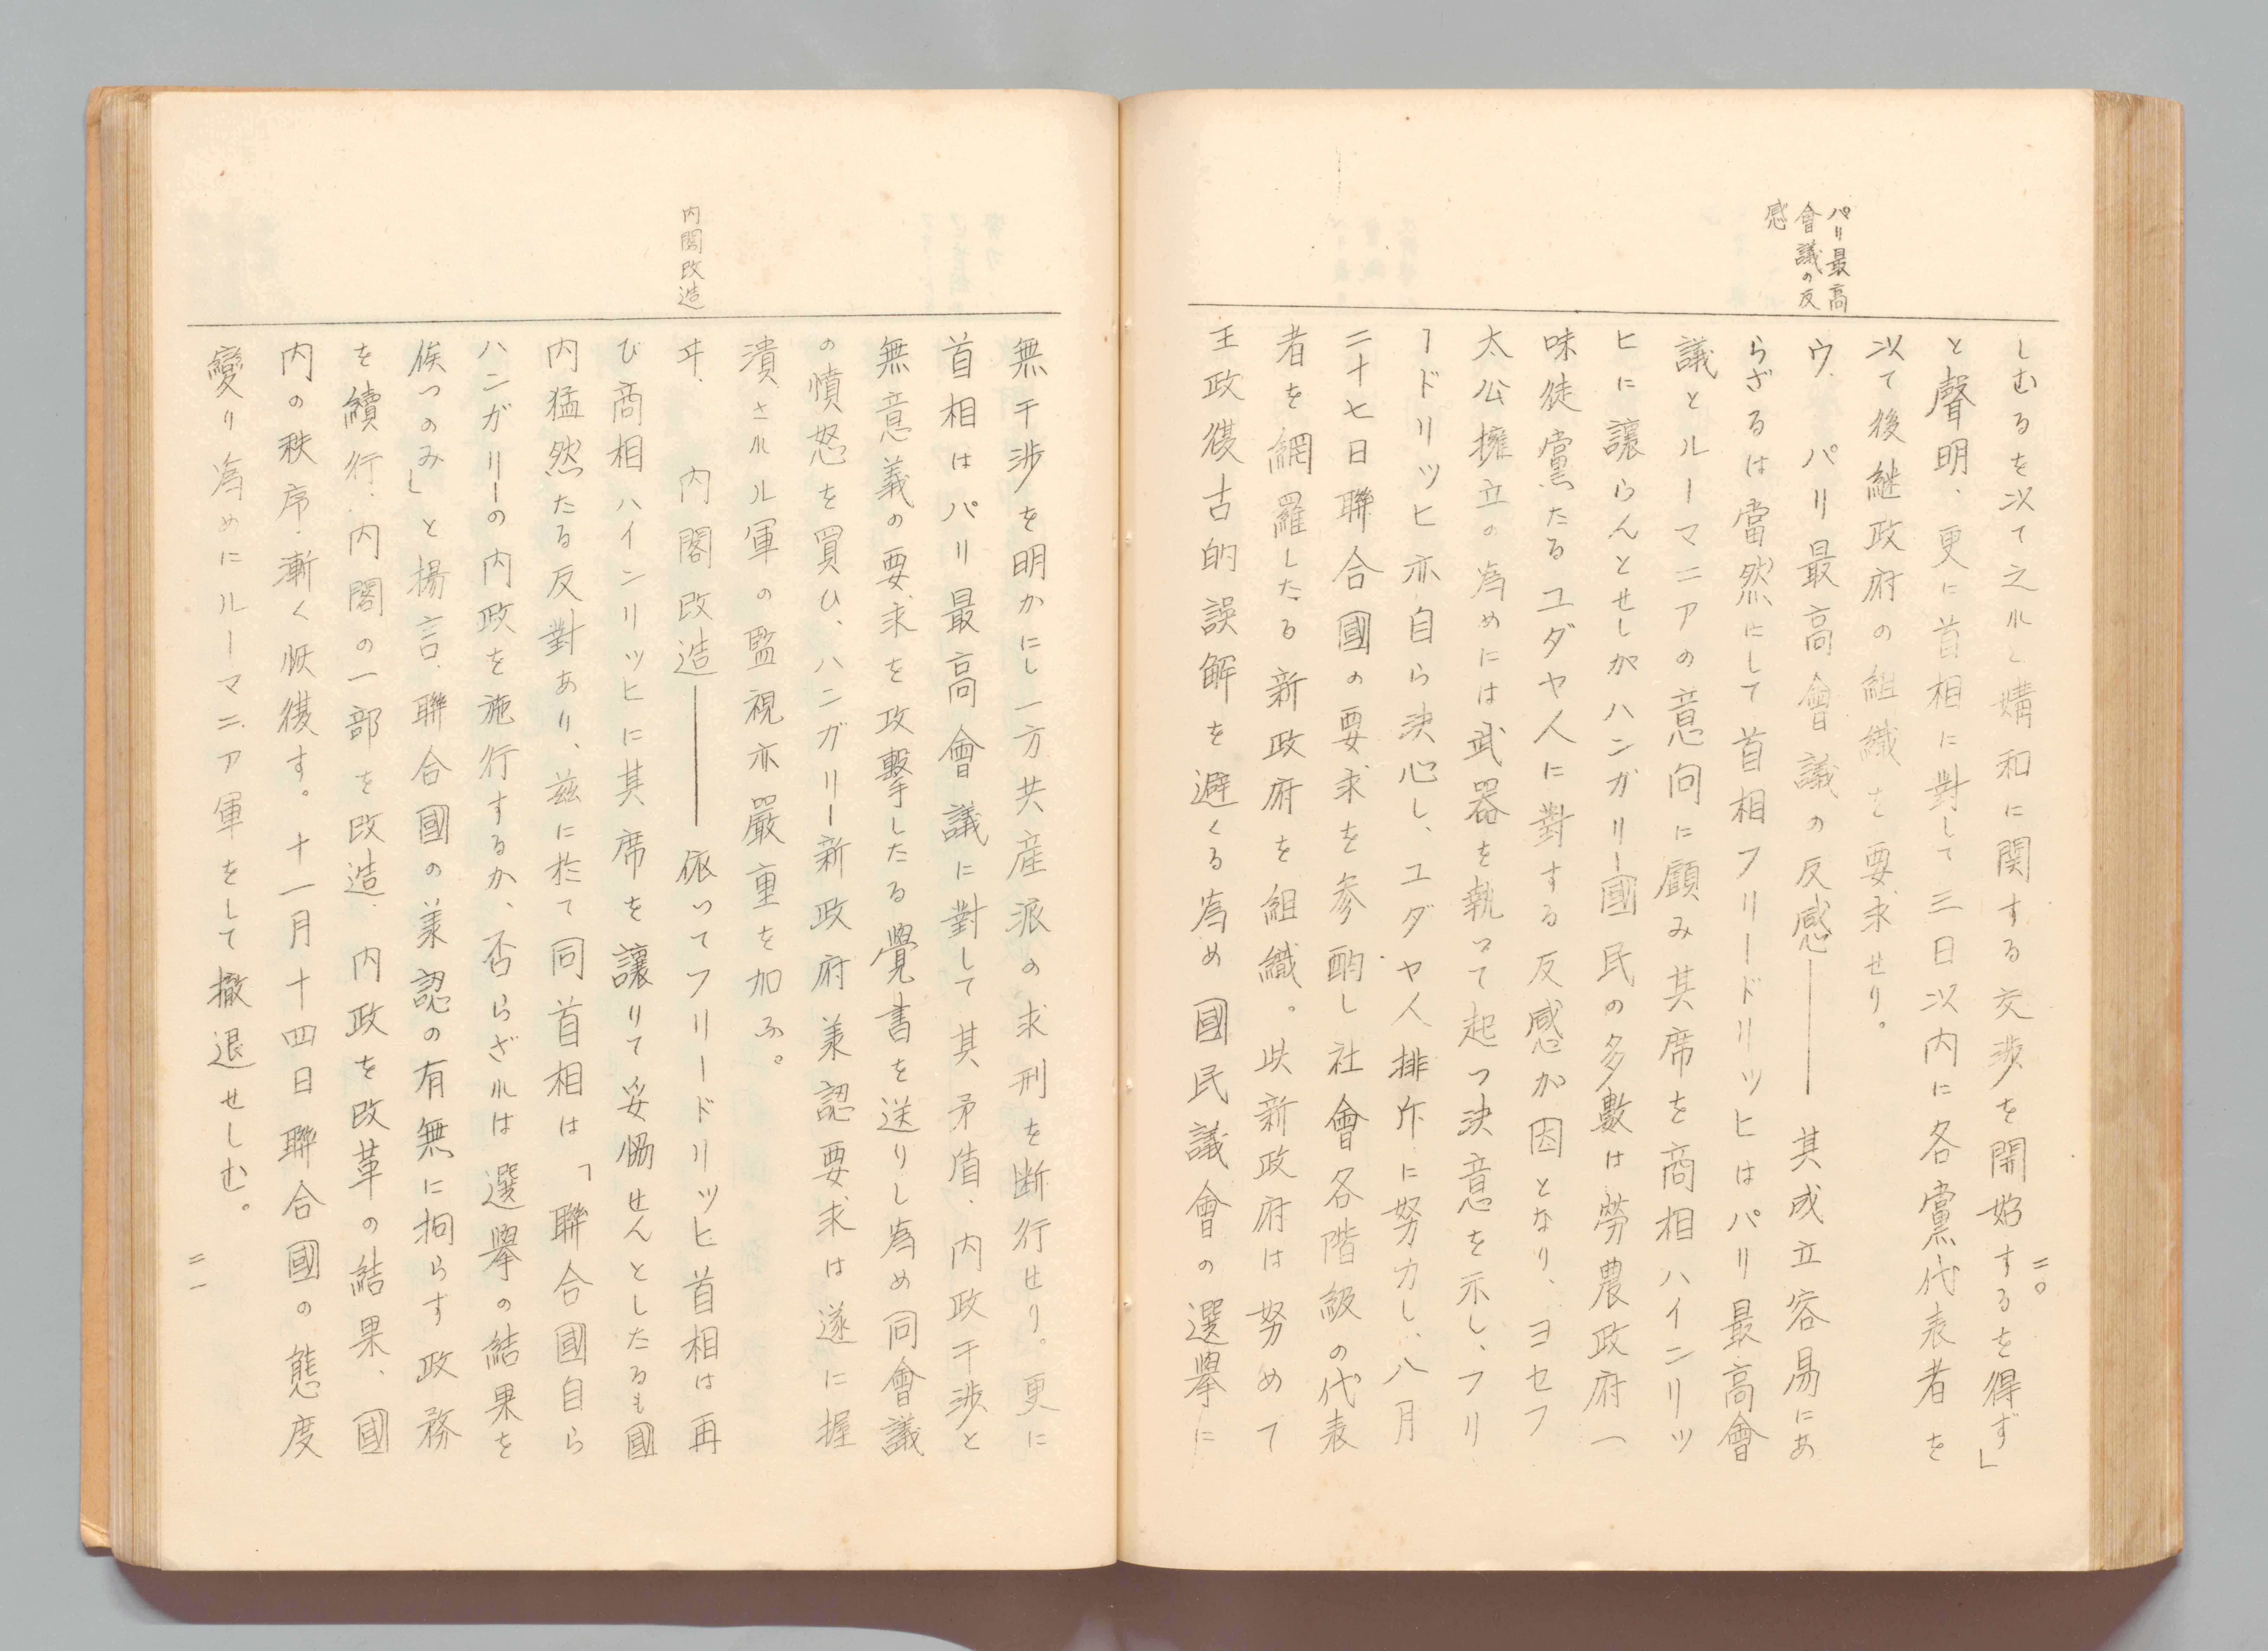 パリ最高
會議の反
感
二〇
しむるを以て之れと媾和に関する交渉を開始するを得ず」
と聲明、更に首相に對して三日以内に各黨代表者を
以て後継政府の組織を要求せり。
ウ、パリ最高會議の反感――其成立容易にあ
らざるは當然にして首相フリードリッヒはパリ最高會
議とルーマニアの意向に顧み其席を商相ハインリッ
ヒに讓らんとせしがハンガリー國民の多數は勞農政府一
味徒黨たるユダヤ人に對する反感が因となり、ヨセフ
太公擁立の為めには武器を執って起つ決意を示し、フリ
ードリッヒ亦自ら決心し、ユダヤ人排斥に努力し、八月
二十七日聯合國の要求を参酌し社會各階級の代表
者を網羅したる新政府を組織。此新政府は努めて
王政復古的誤解を避くる為め國民議會の選擧に
無干渉を明かにし一方共産派の求刑を断行せり。更に
首相はパリ最高會議に對して其矛盾、内政干渉と
無意義の要求を攻擊したる覺書を送りし為め同會議
の憤怒を買ひ、ハンガリー新政府兼認要求は遂に握
潰されル軍の監視亦嚴重を加ふ。
内閣改造
ヰ、内閣改造――依ってフリードリッヒ首相は再
び商相ハインリッヒに其席を讓りて妥恊せんとしたるも國
内猛然たる反對あり、玆に於て同首相は「聯合國自ら
ハンガリーの内政を施行するか、否らざれは選擧の結果を
俟つのみ」と揚言、聯合國の兼認の有無に拘らす政務
を續行、内閣の一部を改造、内政を改革の結果、國
内の秩序漸く恢復す。十一月十四日聯合國の態度
變り為めにルーマニア軍をして撤退せしむ。
二一